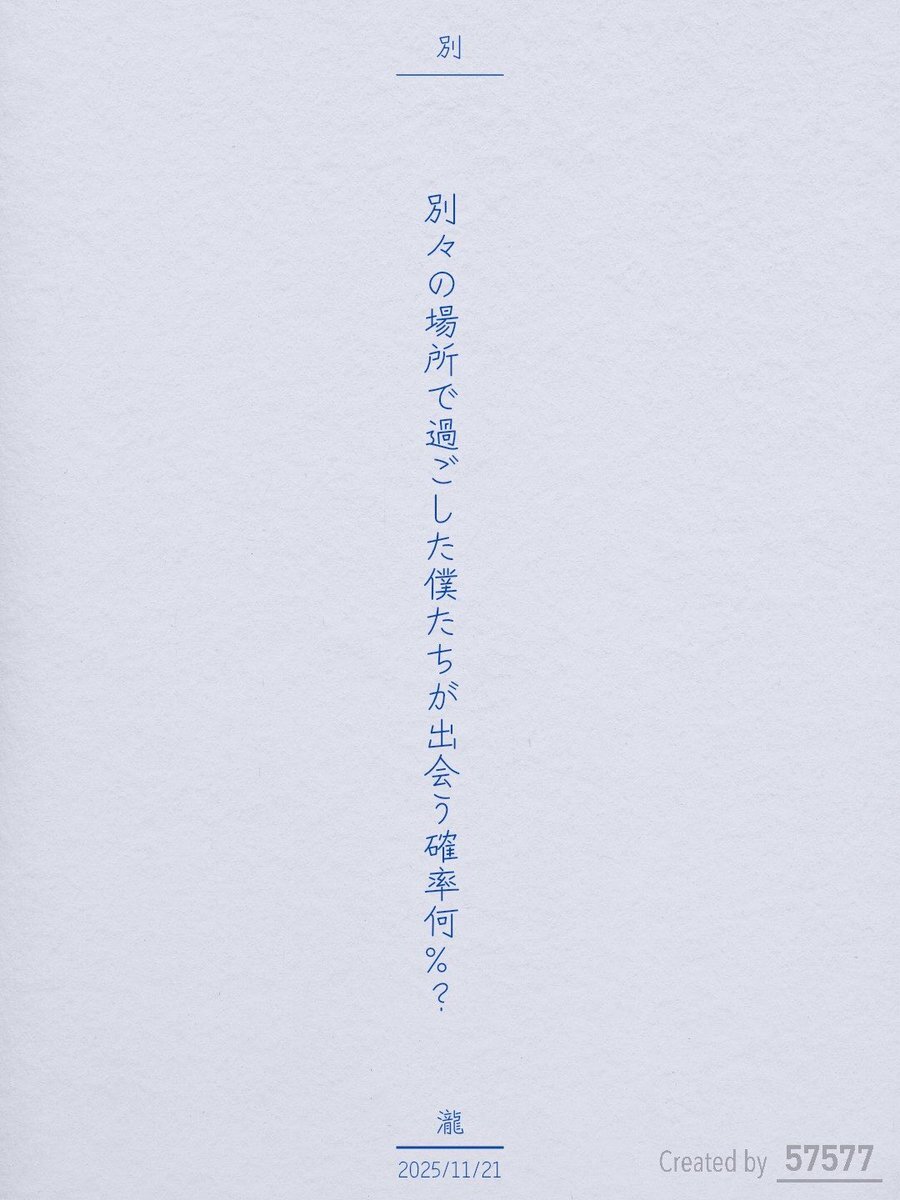 別
別々の場所で過ごした僕たちが出会う確率何%?
瀧
2025/11/21
Created by 57577